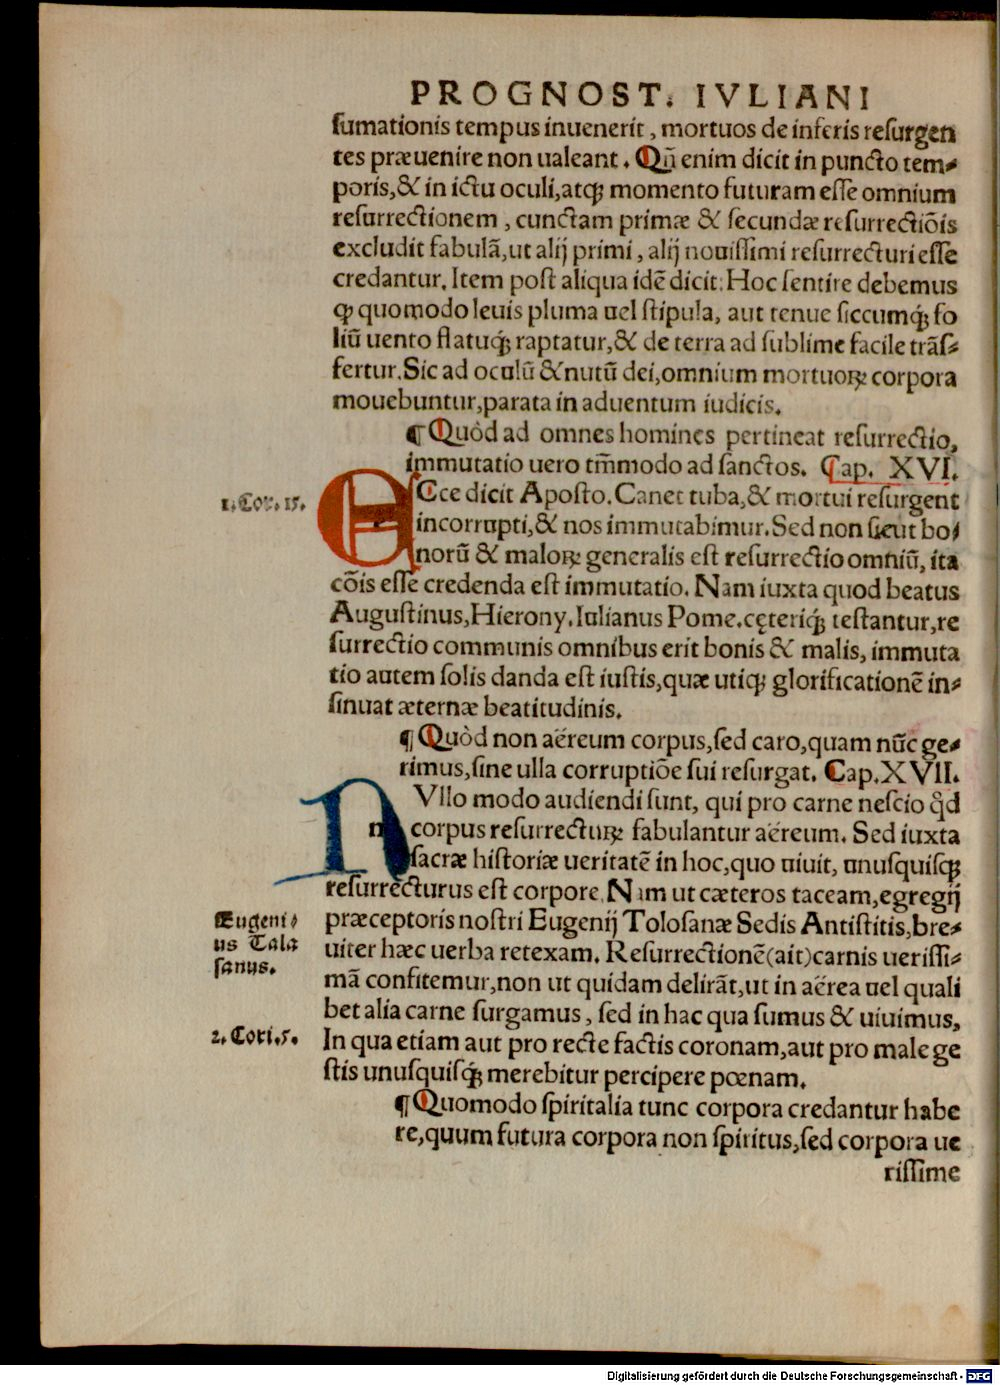 PROGNOST. IVLIANI
ſumationis tempus inuenerit, mortuos de inferis reſurgen
tes præuenire non ualeant. Qñ enim dicit in puncto tem-
poris,& in ictu oculi,atqꝫ momento futuram eſſe omnium
reſurrectionem, cunctam primæ & ſecundæ reſurrectiõis
excludit fabulã,ut alij primi, alij nouiſſimi reſurrecturi eſſe
credantur. Item poſt aliqua idẽ dicit: Hoc ſentire debemus
ꝙ quomodo leuis pluma uel ſtipula, aut tenue ſiccumqꝫ fo
liũ uento flatuqꝫ raptatur,& de terra ad ſublime facile trãſ-
fertur. Sic ad oculũ & nutũ dei,omnium mortuoꝝ corpora
mouebuntur,parata in aduentum iudicis.
¶ Quòd ad omnes homines pertineat reſurrectio,
immutatio uero tm̃modo ad ſanctos. Cap. XVI.
1. Cor. 15.
ECce dicit Apoſto. Canet tuba,& mortui reſurgent
incorrupti,& nos immutabimur. Sed non ſicut bo-
norũ & maloꝝ generalis eſt reſurrectio omniũ, ita
cõis eſſe credenda eſt immutatio. Nam iuxta quod beatus
Auguſtinus,Hierony. Iulianus Pome. cęteriqꝫ teſtantur,re
ſurrectio communis omnibus erit bonis & malis, immuta
tio autem ſolis danda eſt iuſtis,quæ utiqꝫ glorificationẽ in-
ſinuat æternæ beatitudinis.
¶ Quòd non aëreum corpus,ſed caro,quam nũc ge-
rimus,ſine ulla corruptiõe ſui reſurgat. Cap. XVII.
NVllo modo audiendi ſunt, qui pro carne neſcio qd̃
corpus reſurrectuꝝ fabulantur aëreum. Sed iuxta
ſacræ hiſtoriæ ueritatẽ in hoc,quo uiuit, unuſquiſqꝫ
reſurrecturus eſt corpore. Nam ut cæteros taceam,egregij
Eugeni-
us Tala
ſanus.
præceptoris noſtri Eugenij Toloſanæ Sedis Antiſtitis,bre-
uiter hæc uerba retexam. Reſurrectionẽ(ait)carnis ueriſſi-
mã confitemur,non ut quidam delirãt,ut in aërea uel quali
bet alia carne ſurgamus, ſed in hac qua ſumus & uiuimus,
2. Cori. 5.
In qua etiam aut pro recte factis coronam,aut pro male ge
ſtis unuſquiſqꝫ merebitur percipere pœnam.
¶ Quomodo ſpiritalia tunc corpora credantur habe
re,quum futura corpora non ſpiritus,ſed corpora ue
riſſime
Digitalisierung gefördert durch die Deutsche Forschungsgemeinschaft - DFG